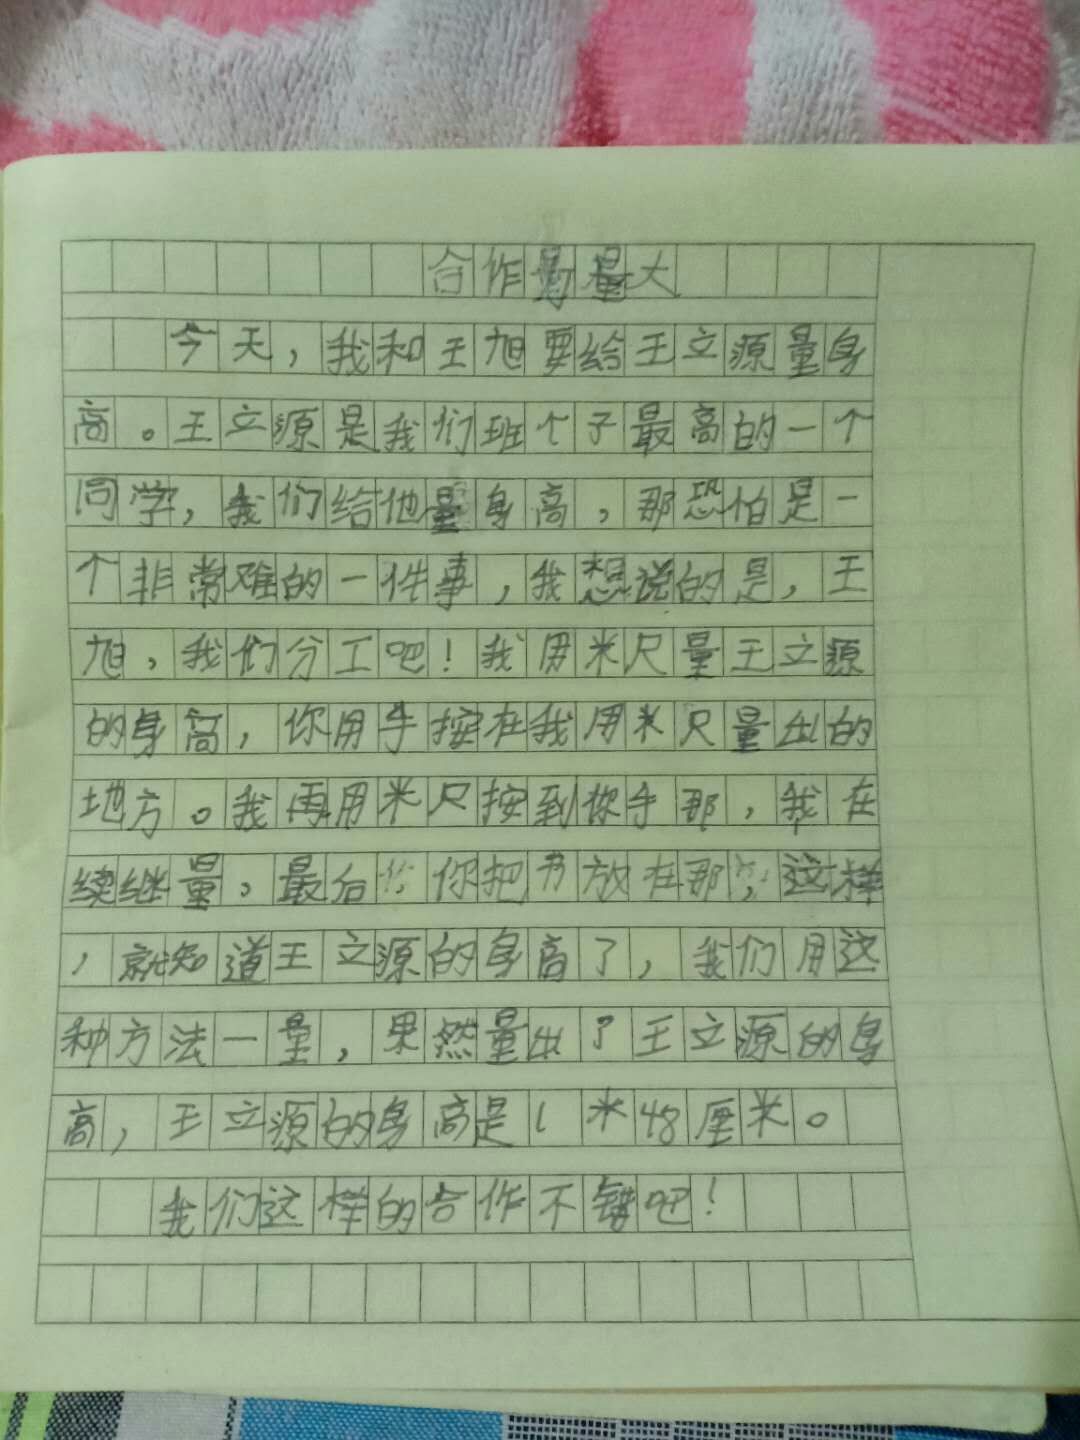 合作力量大
今天，我和王旭要给王立源量身
高。王立源是我们班个子最高的一个
同学，我们给他量身高，那恐怕是一
个非常难的一件事，我想说的是，王
旭，我们分工吧！我用米尺量王立源
的身高，你用手按在我用米尺量出的
地方。我再用米尺按到你手那，我在
续继量，最后你把书放在那，这样
，就知道王立源的身高了，我们用这
种方法一量，果然量出了王立源的身
高，王立源的身高是1米48厘米。
我们这样的合作不错吧！